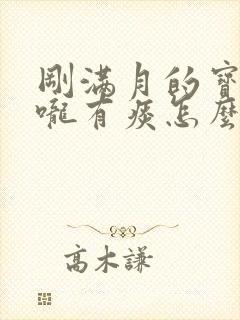 剛滿月的寶
嚨有痰怎麼
高木謙